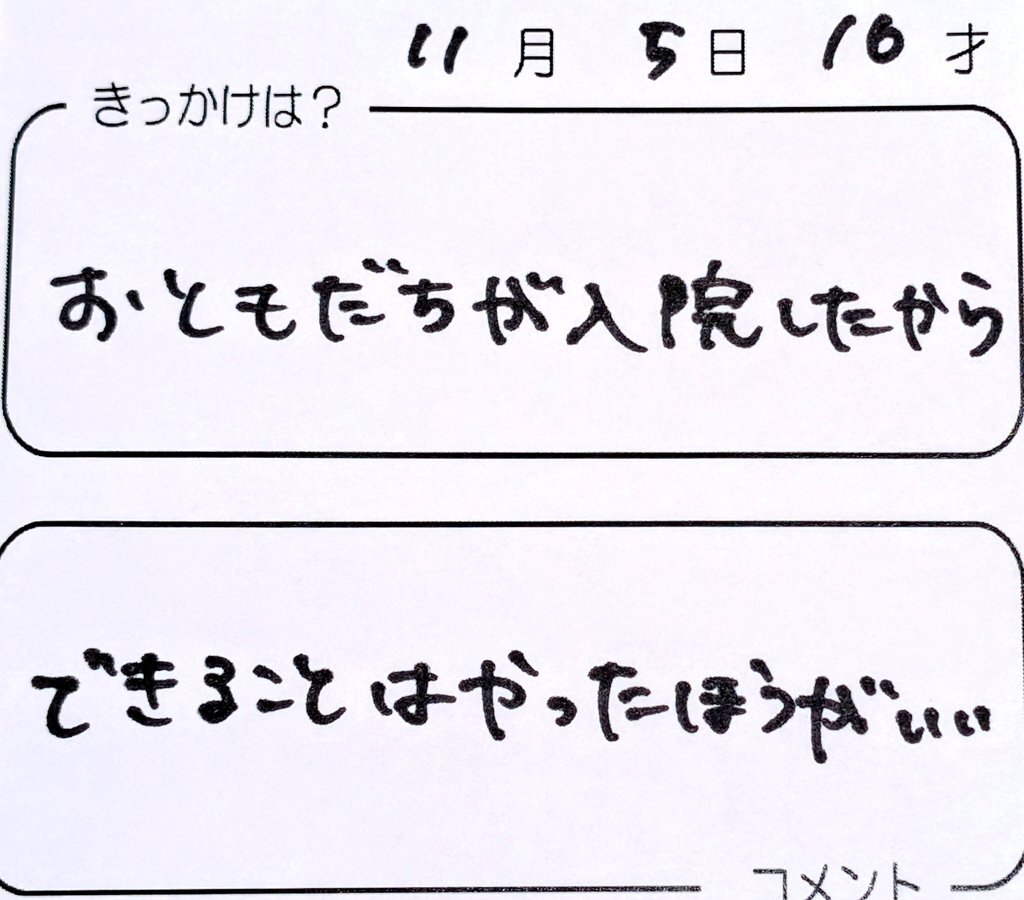 11月5日16才
きっかけは?
おともだちが入院したから
できることはやったほうがいい
コメント